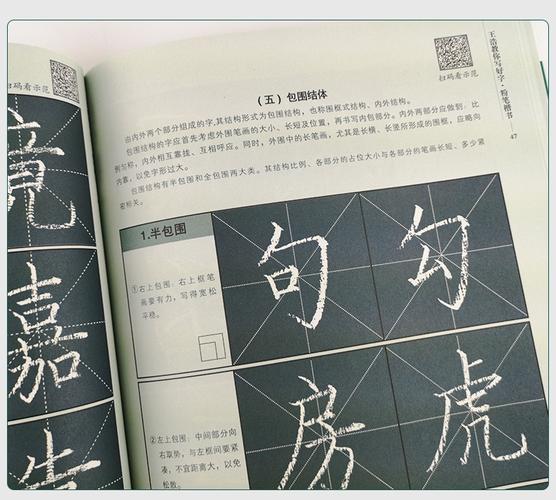 扫码看示范
竟
嘉
扫码看示范
王浩教你写好字·粉笔楷书
47
（五）包围结体
由内外两个部分组成的字,其结构形式为包围结构，也称围框式结构、内外结构。
包围结构的字应首先考虑外围笔画的大小、长短及位置，再书写内包部分。内外两部分应做到：比
例匀称，内外相互靠拢、互相呼应。同时，外围中的长笔画，尤其是长横、长竖所形成的围框，应略向
内靠，以免字形过大。
包围结构有半包围和全包围两大类。其结构比例、各部分的占位大小与各部分的笔画长短、多少紧
密相关。
1.半包围
①右上包围：右上框笔
画要有力，写得宽松
平稳。
句
勾
②左上包围：中间部分向
右取势，与左框间要紧
凑，不宜距离大，以免
松散。
房
虎